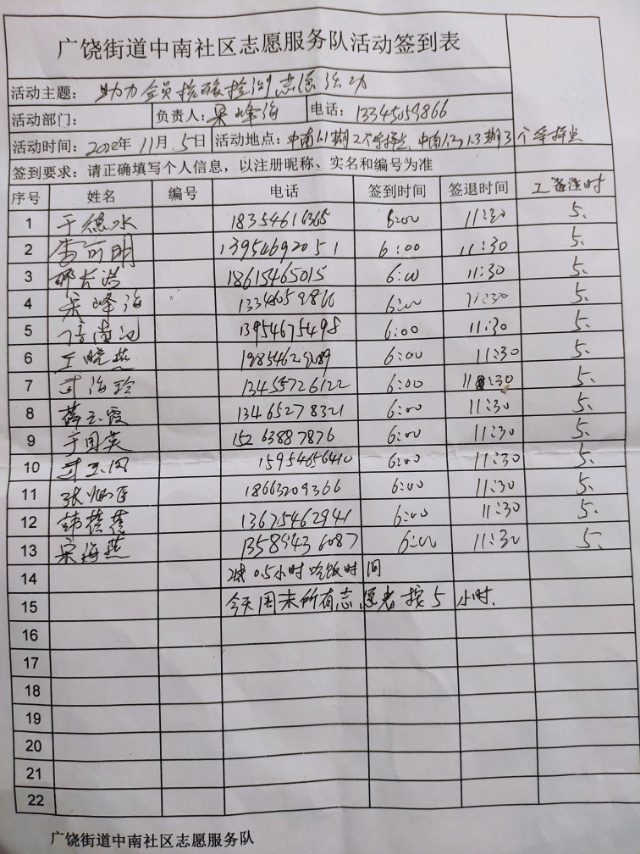 广饶街道中南社区志愿服务队活动签到表
活动主题： 助力全员核酸检测志愿活动
活动部门： 负责人：宋峰海 电话：13345059866
活动时间：2022年11月5日 活动地点：中南1.1期2个采样点 中南1.2、1.3期3个采样点
签到要求：请正确填写个人信息，以注册昵称、实名和编号为准
序号 姓名 编号 电话 签到时间 签退时间 工时
1 于德水 6:00 11:30 5.
2 李可明 13954692051 6:00 11:30 5.
3 18615465015 6:00 11:30 5.
4 宋峰海 6:00 11:30 5.
5 13954675498 6:00 11:30 5.
6 王晓燕 6:00 11:30 5.
7 13455726122 6:00 11:30 5.
8 薛玉霞 13465278321 6:00 11:30 5.
9 于国英 15263887876 6:00 11:30 5.
10 15954656410 6:00 11:30 5.
11 18663209366 6:00 11:30 5.
12 韩蓓蓓 13675462941 6:00 11:30 5.
13 宋海燕 13589436087 6:00 11:30 5.
14 减0.5小时吃饭时间
15 今天周末所有志愿者按5小时.
16
17
18
19
20
21
22
广饶街道中南社区志愿服务队